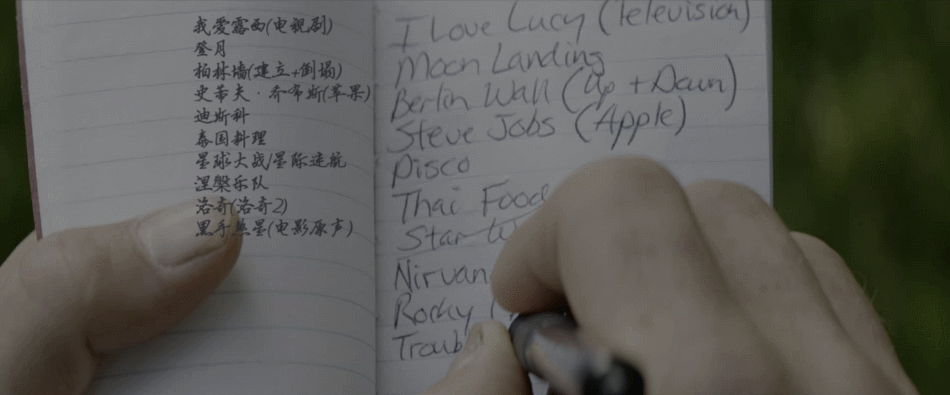 我爱露西(电视剧)
登月
柏林墙(建立+倒塌)
史蒂夫·乔布斯(苹果)
迪斯科
泰国料理
星球大战/星际迷航
涅槃乐队
洛奇(洛奇2)
黑手煞星(电影原声)
I Love Lucy (Television)
Moon Landing
Berlin Wall (Up + Down)
Steve Jobs (Apple)
Disco
Thai Food
Star
Nirvan
Rocky
Troub